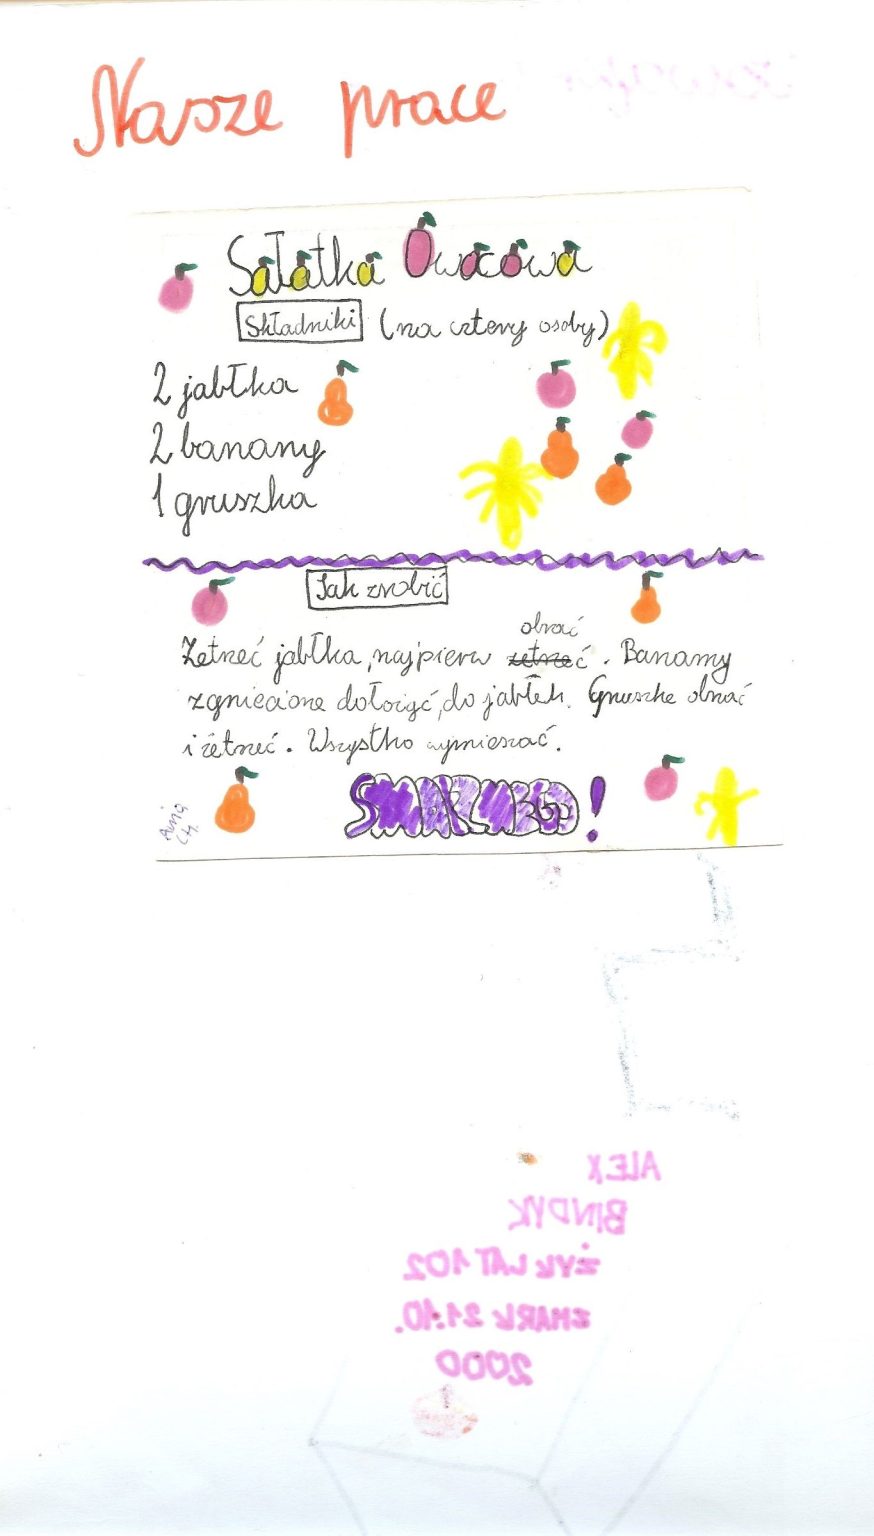 Nasze prace
Sałatka Owocowa
Składniki (na cztery osoby)
2 jabłka
2 banany
1 gruszka
Jak zrobić
obrać
Zetrzeć jabłka, najpierw zetrzeć. Banany
zgniecione dołożyć, do jabłek. Gruszke obrać
i zetrzeć. Wszystko wymieszać.
SMACZNEGO!
Ania
Ch.
ALEX
BINDYK
ŻYŁ LAT 102
ZMARŁ 21.10.
2000